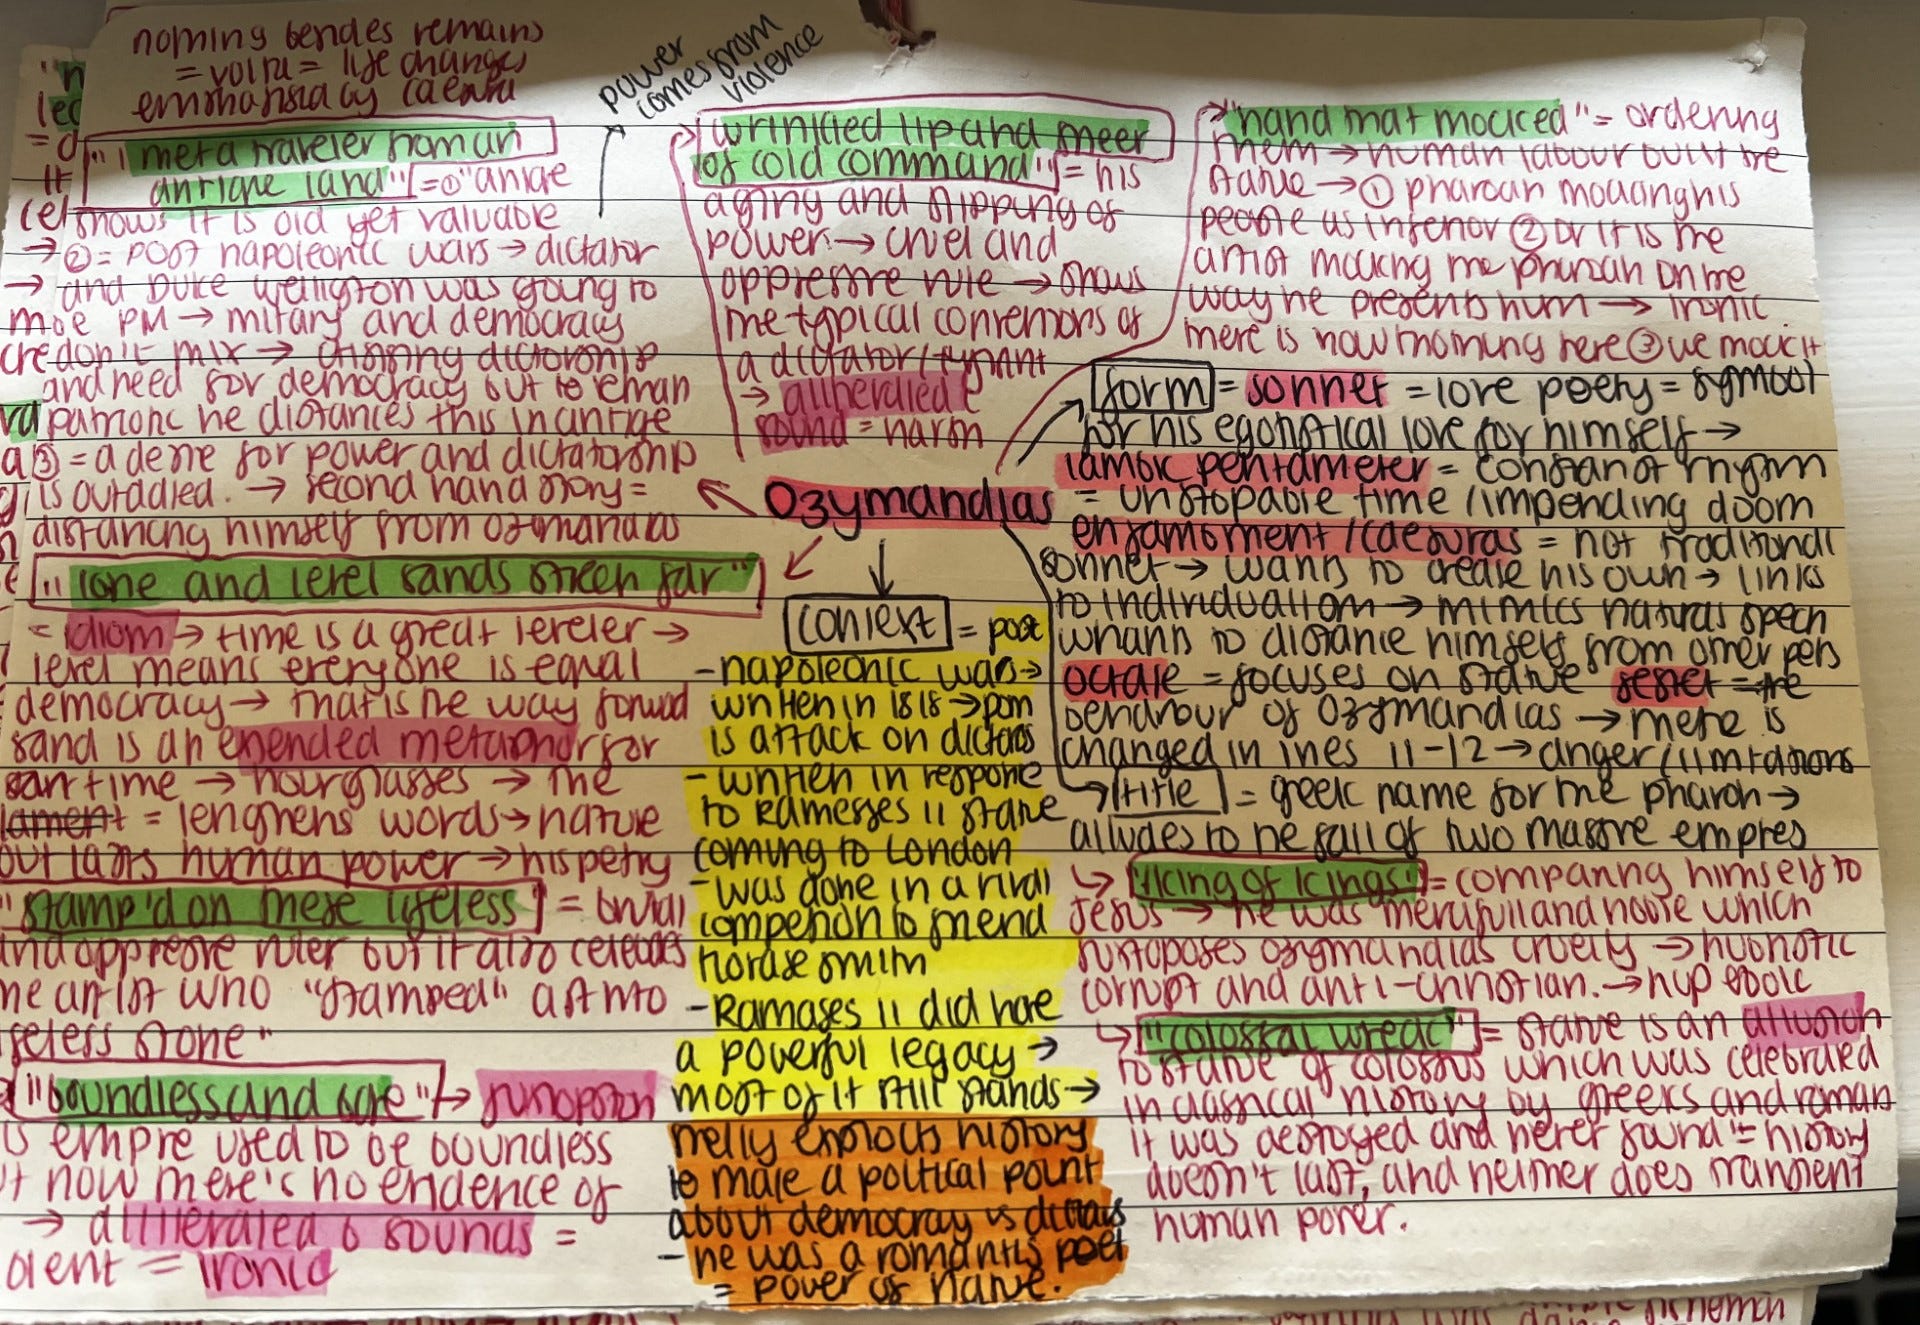 noming besides remains
= volta = life changes
emphasis by caesura
power
comes from
violence
"I met a traveler from an
antique land" = ① "antique
shows it is old yet valuable
→ ② = post napoleonic wars → dictator
→ and Duke wellington was going to
PM → military and democracy
don't mix → dissing dictatorship
and need for democracy but to remain
patriotic he distances this in antique
③ = a desire for power and dictatorship
is outdated. → second hand story =
distancing himself from ozymandias
"lone and level sands strech far"
= idiom → time is a great leveler →
level means everyone is equal
democracy → that is the way forward
sand is an extended metaphor for
time → hourglasses → the
= lengthens words → nature
out lasts human power → his petty
"stamp'd on these lifeless" = brutal
and oppressive ruler but it also celebrates
the artist who "stamped" as into
lifeless stone"
"boundless and bare" → juxtaposition
empire used to be boundless
now there's no evidence of
→ alliterated b sounds =
= ironic
"wrinkled lip and sneer
of cold command" = his
aging and slipping of
power → cruel and
oppressive rule → shows
the typical conventions of
a dictator / tyrant
→ alliterated c
sound = harsh
Ozymandias
context = post
- napoleonic wars →
written in 1818 → poem
is attack on dictators
- written in response
to Ramesses II statue
coming to London
- was done in a rival
competition to friend
horase smith
- Ramases II did have
a powerful legacy →
most of it still stands →
shelly exploits history
to make a political point
about democracy vs dictators
- he was a romantis poet
= power of nature.
"hand that mocked" = ordering
them → human labour built the
statue → ① pharoah mocking his
people as inferior ② or it is the
artist mocking the pharoah on the
way he presents him → ironic
there is now nothing here ③ we mock it
form = sonnet = love poetry = symbol
for his egotistical love for himself →
iambic pentameter = constant rhythm
= unstopable time / impending doom
enjamoment / caesuras = not traditional
sonnet → wants to create his own → links
to individualism → mimics natural speech
whants to distance himself from other poets
octave = focuses on statue sestet = the
behaviour of Ozymandias → there is
changed in lines 11-12 → anger / limitations
title = greek name for the pharoh →
alludes to the fall of two massive empires
↳ "king of kings" = comparing himself to
Jesus → he was merciful and noble which
juxtaposes ozymandias cruelty → hubristic
corrupt and anti-christian. → hyperbolic
↳ "colossal wreck" = statue is an allusion
to statue of colossus which was celebrated
in classical history by greeks and roman
it was destroyed and never found = history
doesn't last, and neither does transient
human power.